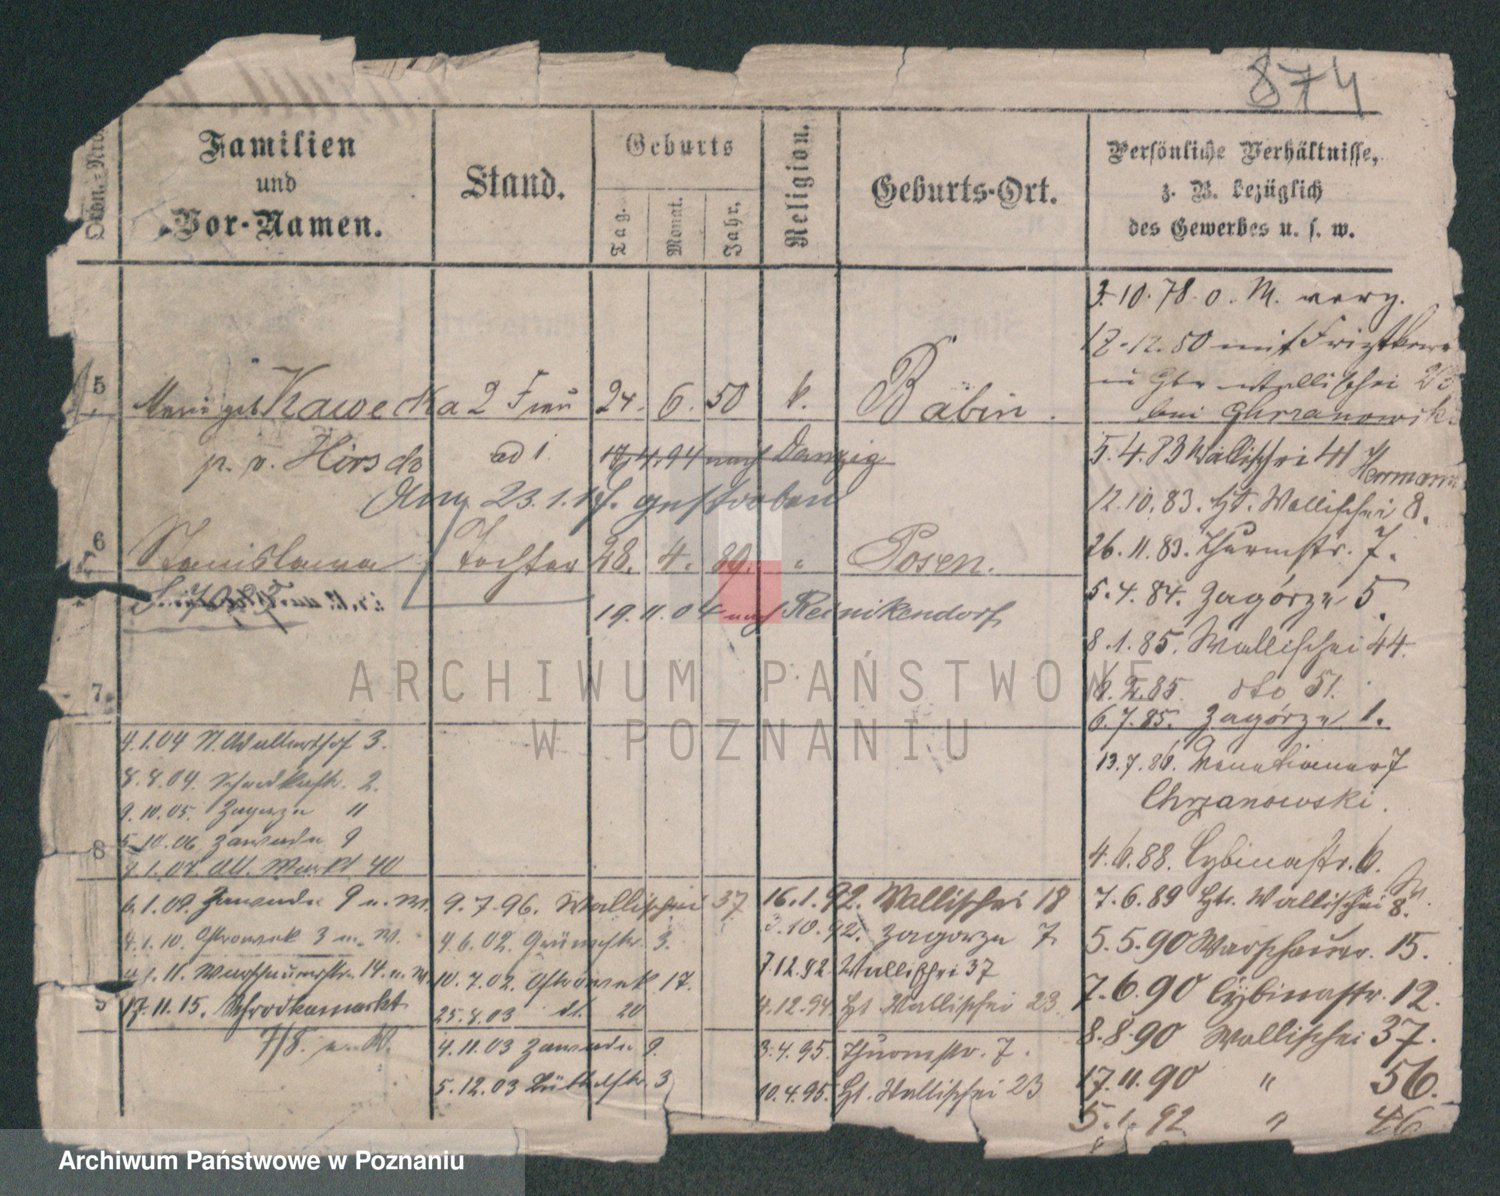 874
Ordn.-Nro.
Familien
und
Vor-Namen.
Stand.
Geburts
Tag.
Monat.
Jahr.
Religion.
Geburts-Ort.
Persönliche Verhältnisse,
z. B. bezüglich
des Gewerbes u. s. w.
5
geb Kawecka 2 Frau 24. 6. 50 k. Babin.
p. v. Hirsch ad 1. 17.4.94 nach Danzig
23.1. gestorben
6
Stanislawa Tochter 28. 4. 89. " Posen.
19.11.04 nach Reinikendorf
7
8
9
4.1.04
8.8.04. 2.
9.10.05. Zagorze 11
5.10.06 Zawade 9
4.1.07 Alt. Markt 40
6.1.09. Zawade 9 u. W.
4.1.10. Ostrowek 3 u. W.
4.1.11. Warschauerstr. 14. u. W
17.11.15. Schrodkamarkt
7/8. u. W.
9.7.96. Wallischei 37
4.6.02. 3.
10.7.02. Ostrowek 17.
25.8.03 dt. 20
4.11.03 Zawade 9.
5.12.03 3
16.1.92. Wallischei 18
3.10.92. Zagorze 7
7.12.92. Wallischei 37
4.12.94. Ht. Wallischei 23
3.4.95. Thurmstr. 7.
10.4.95. Ht. Wallischei 23
3.10.78. o. M. verz.
12.12.80 mit
Wallischei
bei Chrzanowski
5.4.83 Wallischei 41
Herrmann
12.10.83. Ht. Wallischei 8.
26.11.83. Thurmstr. 7.
5.4.84. Zagórze 5.
8.1.85. Wallischei 44.
dto 51.
6.7.85. Zagórze 1.
13.7.86. Venetianer 7
Chrzanowski.
4.6.88. Cybinastr. 6.
7.6.89 Ht. Wallischei 8.
5.5.90 Warschauer. 15.
7.6.90 Cybinastr. 12.
8.8.90 Wallischei 37.
17.11.90 " 56.
5.1.92 " 46
ARCHIWUM PAŃSTWOWE
W POZNANIU
Archiwum Państwowe w Poznaniu